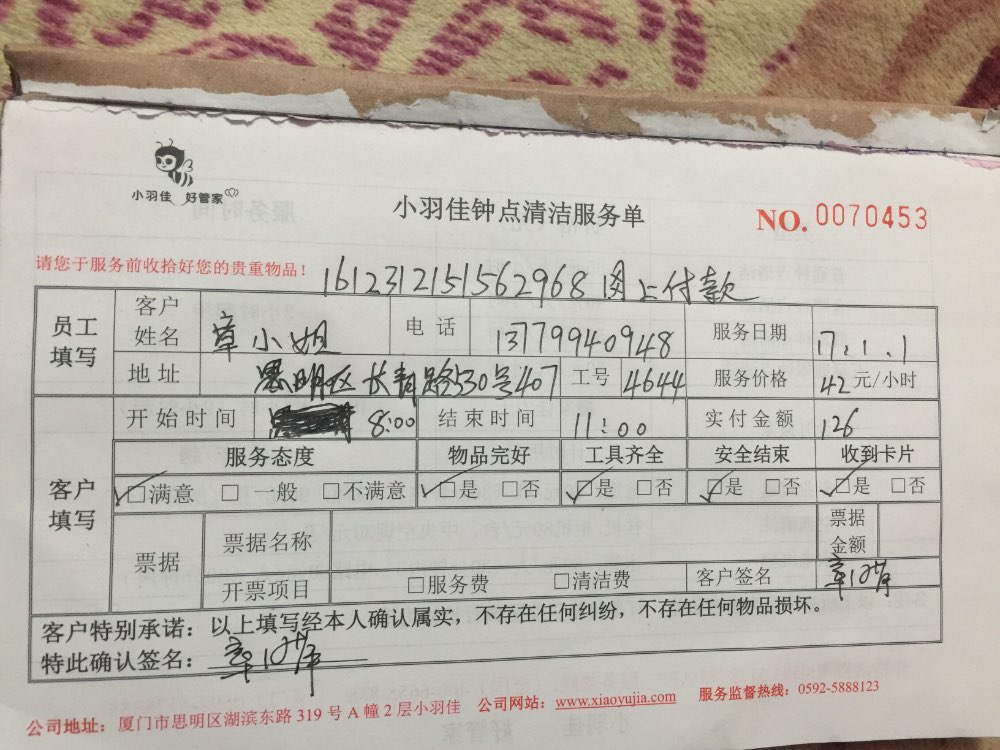 小羽佳 好管家
小羽佳钟点清洁服务单
NO. 0070453
请您于服务前收拾好您的贵重物品！
1612312151562968 网上付款
员工填写 客户姓名 章小姐 电话 13779940948 服务日期 17.1.1
地址 思明区长青路530号407 工号 4644 服务价格 42元/小时
客户填写 开始时间 8:00 结束时间 11:00 实付金额 126
服务态度 物品完好 工具齐全 安全结束 收到卡片
☑满意 □一般 □不满意 ☑是 □否 ☑是 □否 ☑是 □否 ☑是 □否
票据 票据名称 票据金额
开票项目 □服务费 □清洁费 客户签名
客户特别承诺：以上填写经本人确认属实，不存在任何纠纷，不存在任何物品损坏。
特此确认签名：
公司地址：厦门市思明区湖滨东路 319 号 A 幢 2 层小羽佳 公司网站：www.xiaoyujia.com 服务监督热线：0592-5888123